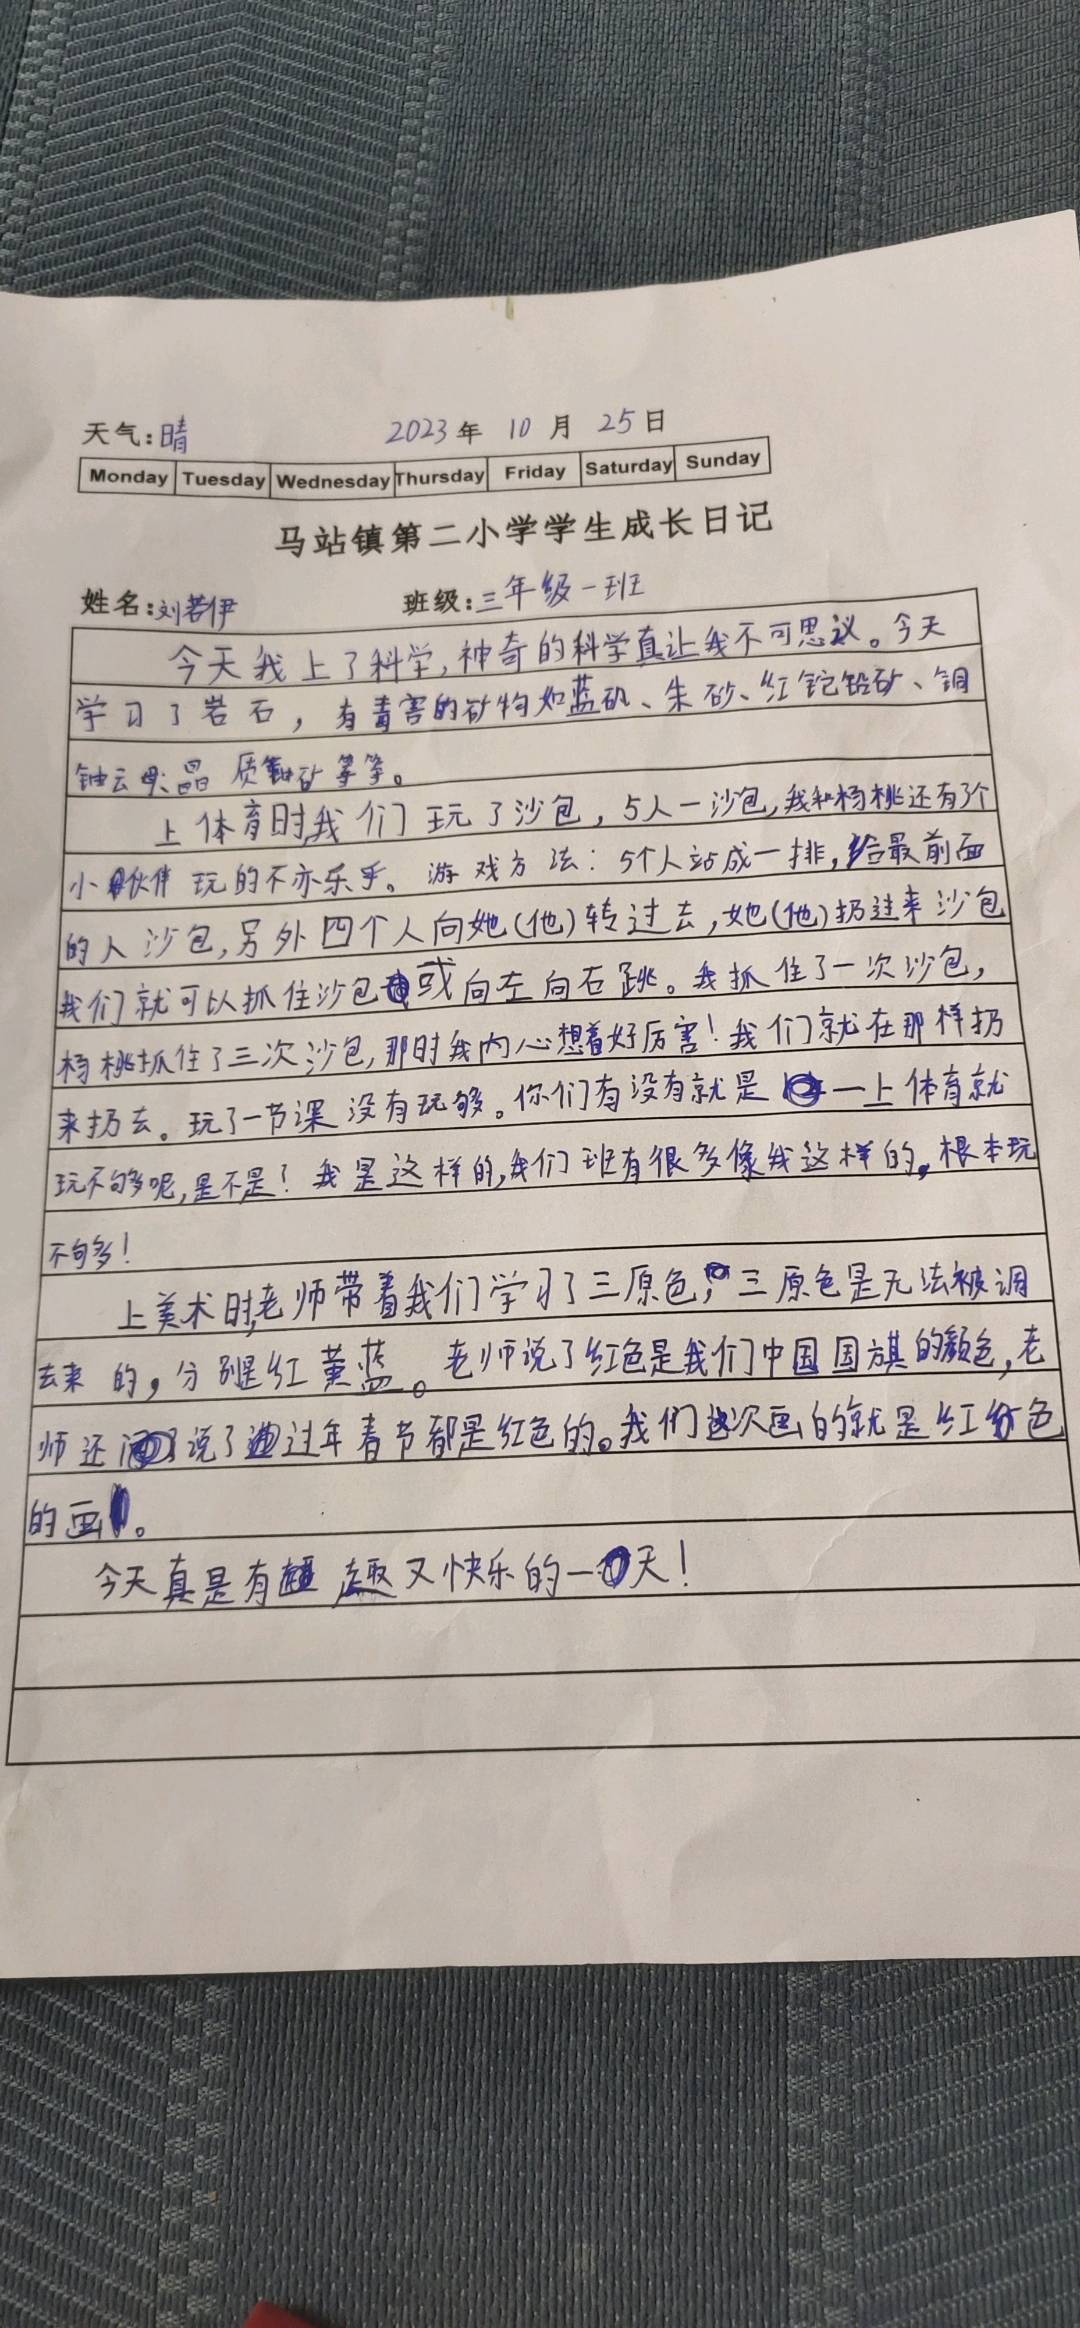 天气:晴 2023年 10月 25日
Monday Tuesday Wednesday Thursday Friday Saturday Sunday
马站镇第二小学学生成长日记
姓名:刘若伊 班级:三年级一班
今天我上了科学,神奇的科学真让我不可思议。今天
学习了岩石，有青害的矿物如蓝矾、朱砂、红铊铅矿、铜
铀云母、晶质铀矿等等。
上体育时,我们玩了沙包，5人一沙包,我和杨桃还有3个
小伙伴玩的不亦乐乎。游戏方法：5个人站成一排,给最前面
的人沙包,另外四个人向她(他)转过去,她(他)扔过来沙包
我们就可以抓住沙包或向左向右跳。我抓住了一次沙包,
杨桃抓住了三次沙包,那时我内心想着好厉害!我们就在那样扔
来扔去。玩了一节课没有玩够。你们有没有就是一上体育就
玩不够呢,是不是!我是这样的,我们班有很多像我这样的,根本玩
不够!
上美术时,老师带着我们学习了三原色,三原色是无法被调
去来的,分别是红黄蓝。老师说了红色是我们中国国旗的颜色,老
师还说了过年春节都是红色的。我们这次画的就是红色
的画。
今天真是有趣又快乐的一天!